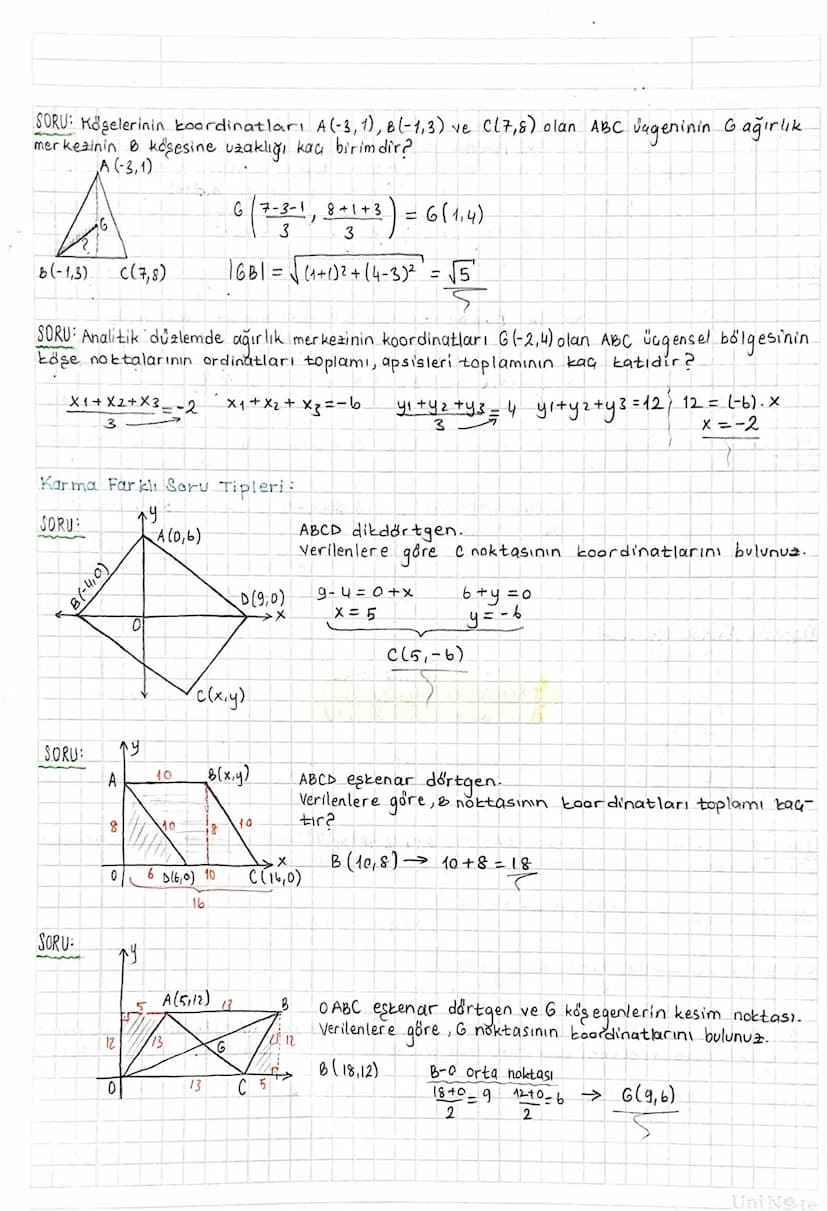 SORU: Köşelerinin koordinatları A(-3,1), B(-1,3) ve C(7,8) olan ABC üçgeninin G ağırlık
merkezinin B köşesine uzaklığı kaç birimdir?
A(-3,1)
G
?
B(-1,3) C(7,8)
G((7-3-1)/3, (8+1+3)/3) = G(1,4)
|GB| = √((1+1)² + (4-3)²) = √5
SORU: Analitik düzlemde ağırlık merkezinin koordinatları G(-2,4) olan ABC üçgensel bölgesinin
köşe noktalarının ordinatları toplamı, apsisleri toplamının kaç katıdır?
(x1+x2+x3)/3 = -2 x1+x2+x3=-6 (y1+y2+y3)/3 = 4 y1+y2+y3=12 12 = (-6).x
x = -2
Karma Farklı Soru Tipleri:
SORU:
y
A(0,6)
B(-4,0)
D(9,0)
x
0
C(x,y)
ABCD dikdörtgen.
Verilenlere göre C noktasının koordinatlarını bulunuz.
9-4=0+x 6+y=0
x=5 y=-6
C(5,-6)
SORU:
y
A 10 B(x,y)
8 10 8 10
x
0 6 D(6,0) 10 C(16,0)
16
ABCD eşkenar dörtgen.
Verilenlere göre, B noktasının koordinatları toplamı kaç-
tır?
B(10,8) → 10+8=18
SORU:
y
5 A(5,12) 13 B
12 13 G 12
0 13 C 5
OABC eşkenar dörtgen ve G köşegenlerin kesim noktası.
Verilenlere göre, G noktasının koordinatlarını bulunuz.
B(18,12) B-O orta noktası
(18+0)/2 = 9 (12+0)/2 = 6 → G(9,6)
UniNote